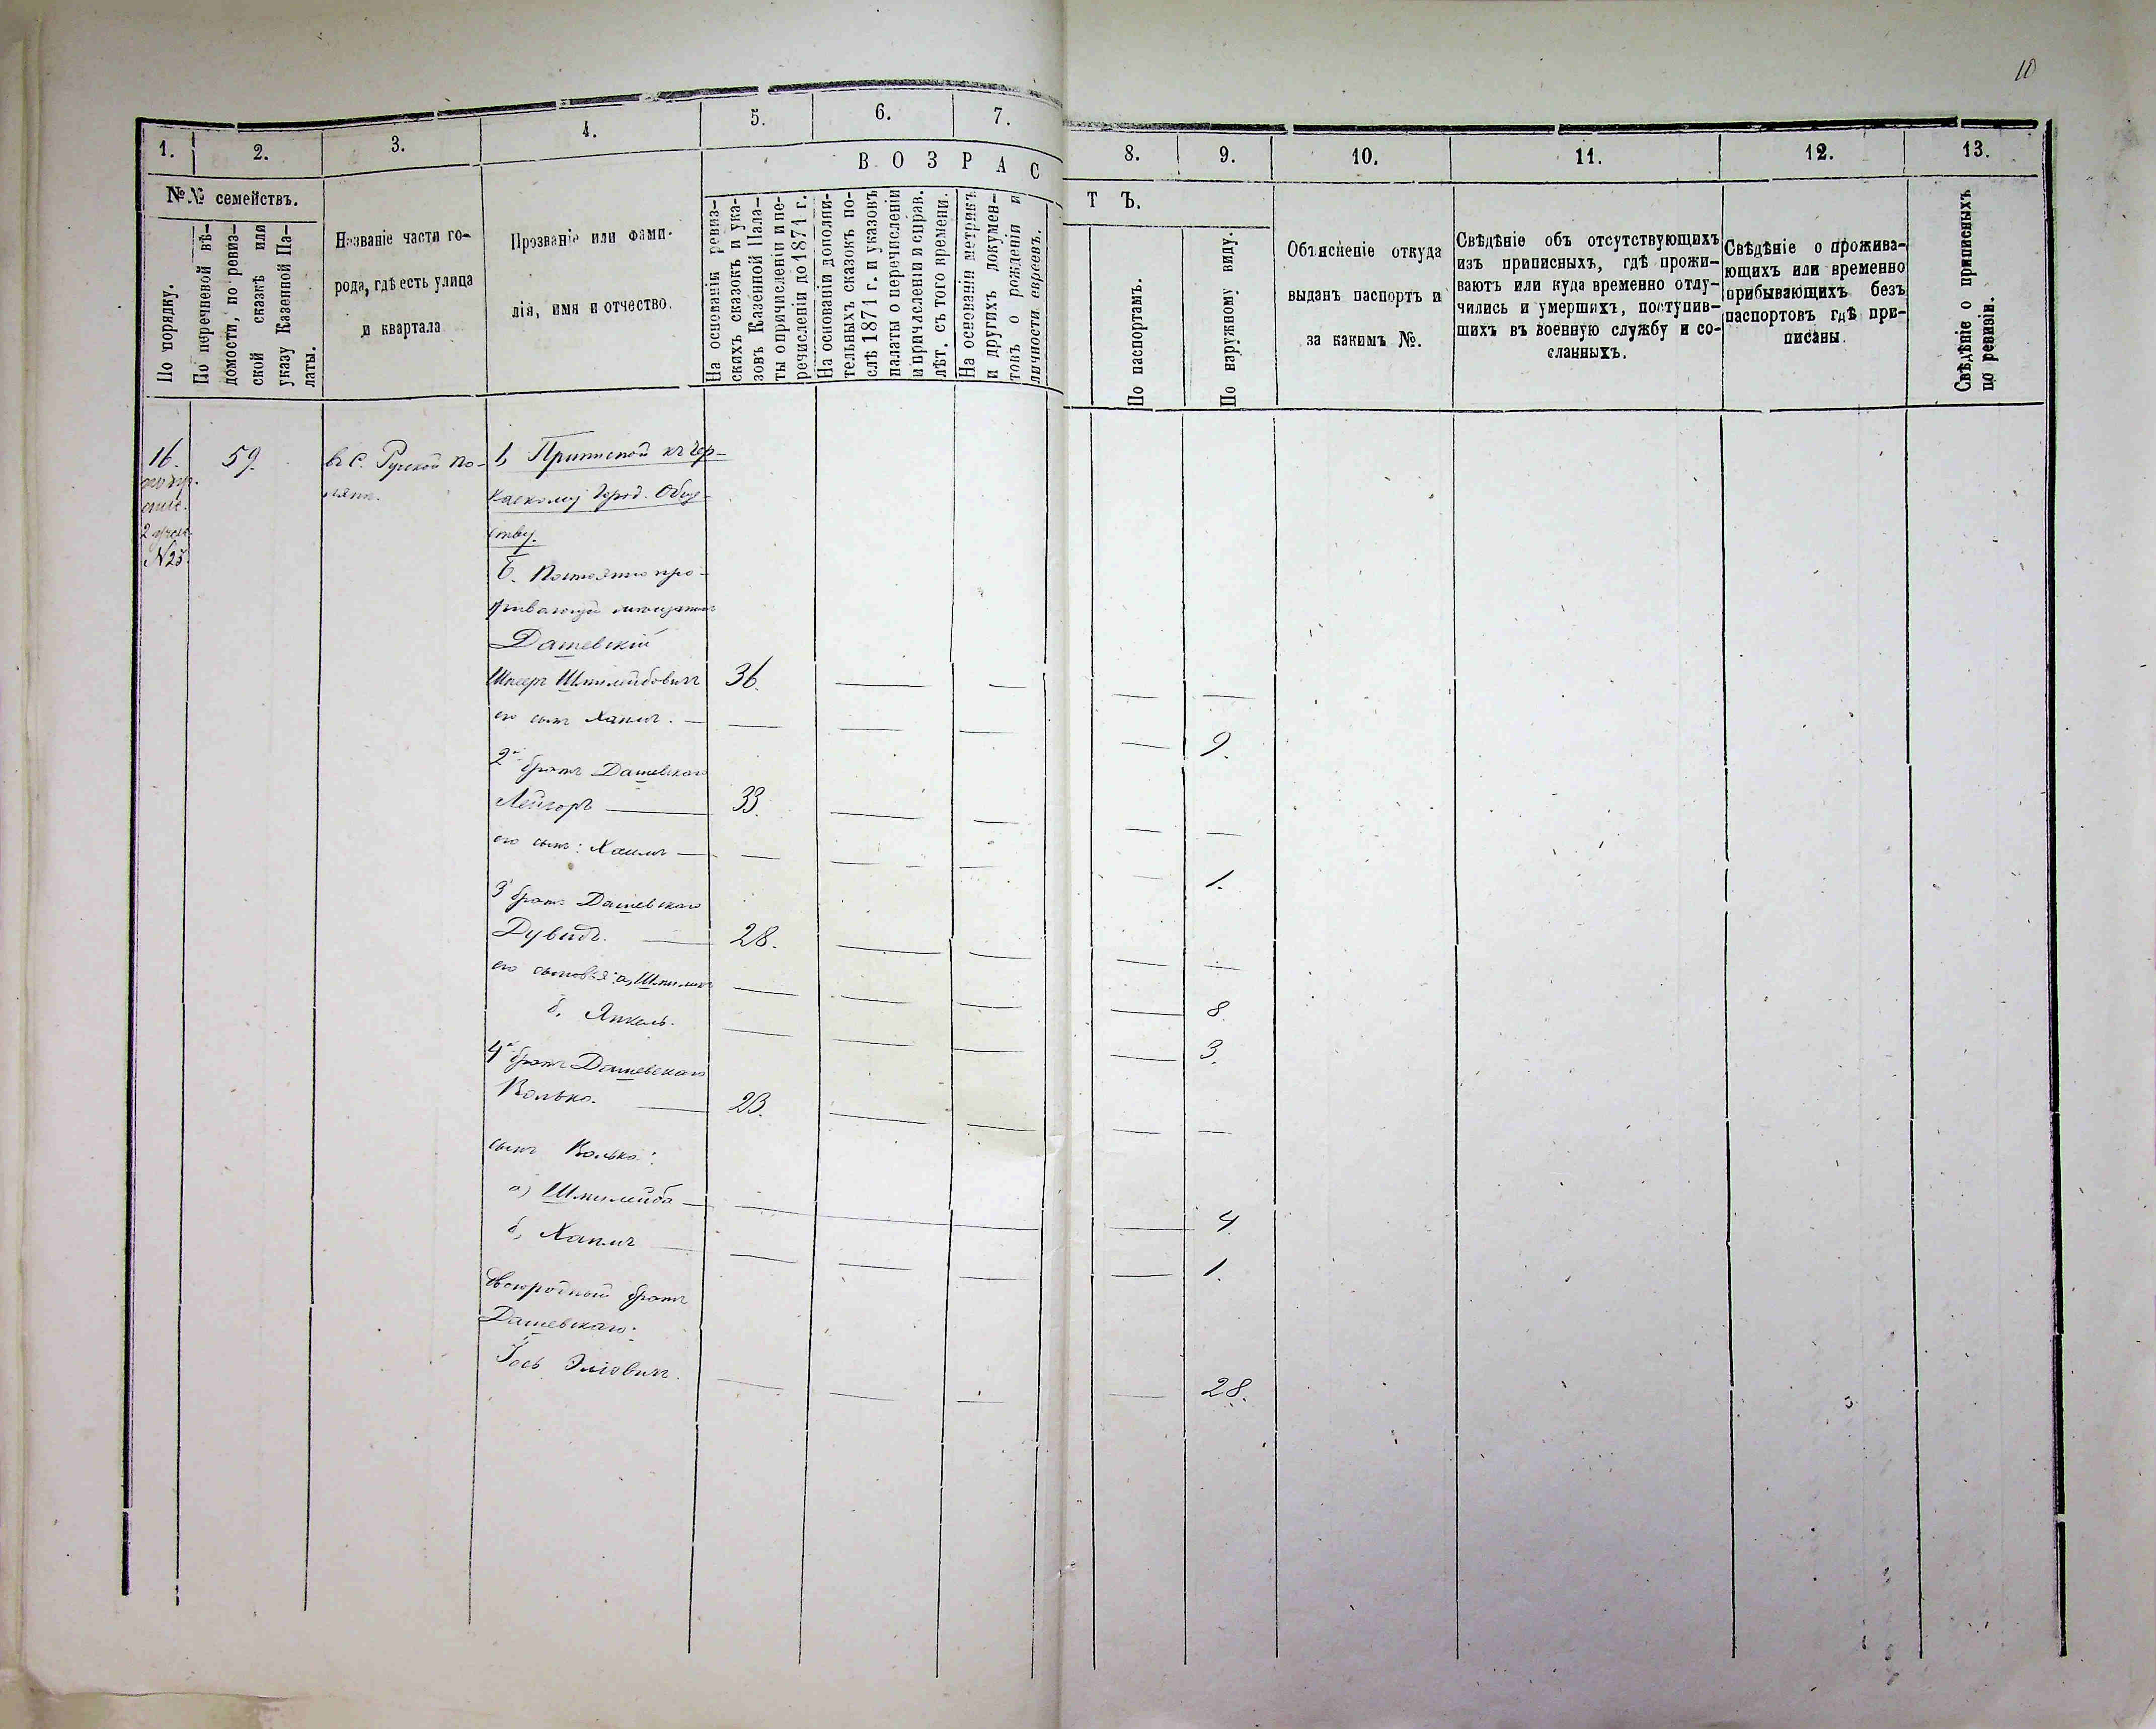 10
1.
2.
3.
4.
5.
6.
7.
8.
9.
10.
11.
12.
13.
№№ семействъ.
По порядку.
По перечневой вѣ-
домости, по ревиз-
ской сказкѣ или
указу Казенной Па-
латы.
Названіе части го-
рода, гдѣ есть улица
и квартала
Прозваніе или фами-
лія, имя и отчество.
ВОЗРАС
ТЪ.
На основаніи ревиз-
скихъ сказокъ и ука-
зовъ Казенной Пала-
ты о причисленіи и пе-
речисленіи до 1871 г.
На основаніи дополни-
тельныхъ сказокъ по-
слѣ 1871 г. и указовъ
палаты о перечисленіи
и причисленіи и справ.
лѣт. съ того времени.
На основаніи метрикъ
и другихъ докумен-
товъ о рожденіи и
личности евреевъ.
По паспортамъ.
По наружному виду.
Объясненіе откуда
выданъ паспортъ и
за какимъ №.
Свѣдѣніе объ отсутствующихъ
изъ приписныхъ, гдѣ прожи-
ваютъ или куда временно отлу-
чились и умершихъ, поступив-
шихъ въ военную службу и со-
сланныхъ.
Свѣдѣніе о прожива-
ющихъ или временно
прибывающихъ безъ
паспортовъ гдѣ при-
писаны.
Свѣдѣніе о приписныхъ
по ревизіи.
16.
2
№25.
59.
въ с. Русской По-
лянѣ.
1, Приписной къ Чер-
каскому Город. Обще-
ству.
Б. Постоянно про-
живающій мѣщанинъ
Дашевскій
Шнеер Шмилейбовичъ 36.
его сынъ Хаимъ. — 9.
2й братъ Дашевскаго
Лейзоръ — 33.
его сынъ: Хаимъ — 1.
3й братъ Дашевскаго
Дувидъ. — 28.
его сыновья: а, Шмиликъ 8.
б, Янкель. 3.
4й братъ Дашевскаго
Волько. — 23.
сынъ Волька:
а) Шмилейба — 4.
б, Хаимъ — 1.
двоюродный братъ
Дашевскаго:
Іось Эліовичъ. 28.